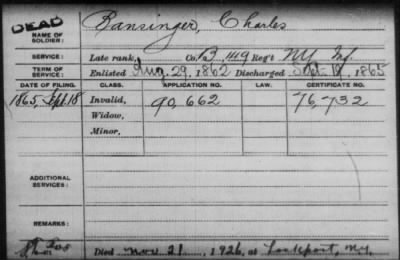 DEAD
NAME OF SOLDIER: Bansinger, Charles
SERVICE: Late rank, Co. B, 149 Reg't NY Inf.
TERM OF SERVICE: Enlisted Aug. 29, 1862 Discharged Sept. 1865
DATE OF FILING. CLASS. APPLICATION NO. LAW. CERTIFICATE NO.
1865, Sept. 18 Invalid, 90,662 76,732
Widow,
Minor,
ADDITIONAL SERVICES:
REMARKS:
Died Nov. 21, 1926, at Lockport, NY.